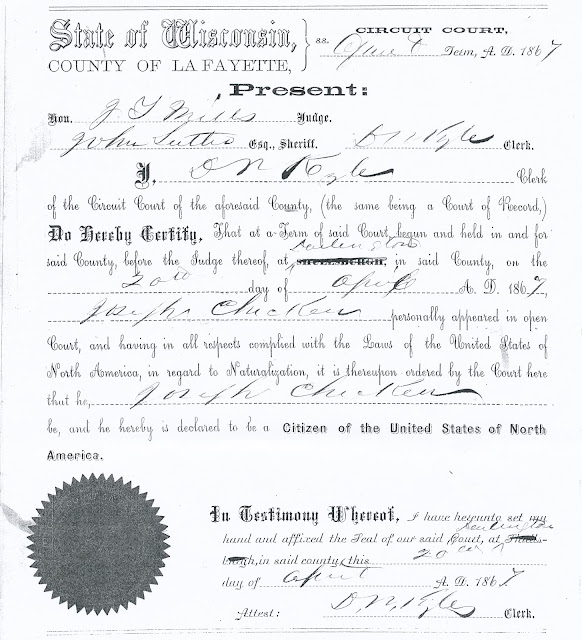 State of Wisconsin, } ss. CIRCUIT COURT,
COUNTY OF LA FAYETTE, April Term, A. D. 1867
Present:
Hon. J T Mills Judge.
John Esq., Sheriff. D N Kyle Clerk.
I, D N Kyle Clerk
of the Circuit Court of the aforesaid County, (the same being a Court of Record,)
Do Hereby Certify, That at a Term of said Court, begun and held in and for
Darlington
said County, before the Judge thereof, at SHULLSBURGH, in said County, on the
20th day of April A. D. 1867,
Joseph Chicken personally appeared in open
Court, and having in all respects complied with the Laws of the United States of
North America, in regard to Naturalization, it is thereupon ordered by the Court here
that he, Joseph Chicken
be, and he hereby is declared to be a Citizen of the United States of North
America.
In Testimony Whereof, I have hereunto set my
Darlington
hand and affixed the Seal of our said Court, at Shulls-
burgh, in said county this 20th
day of April A. D. 1867
Attest: D. N. Kyle Clerk.